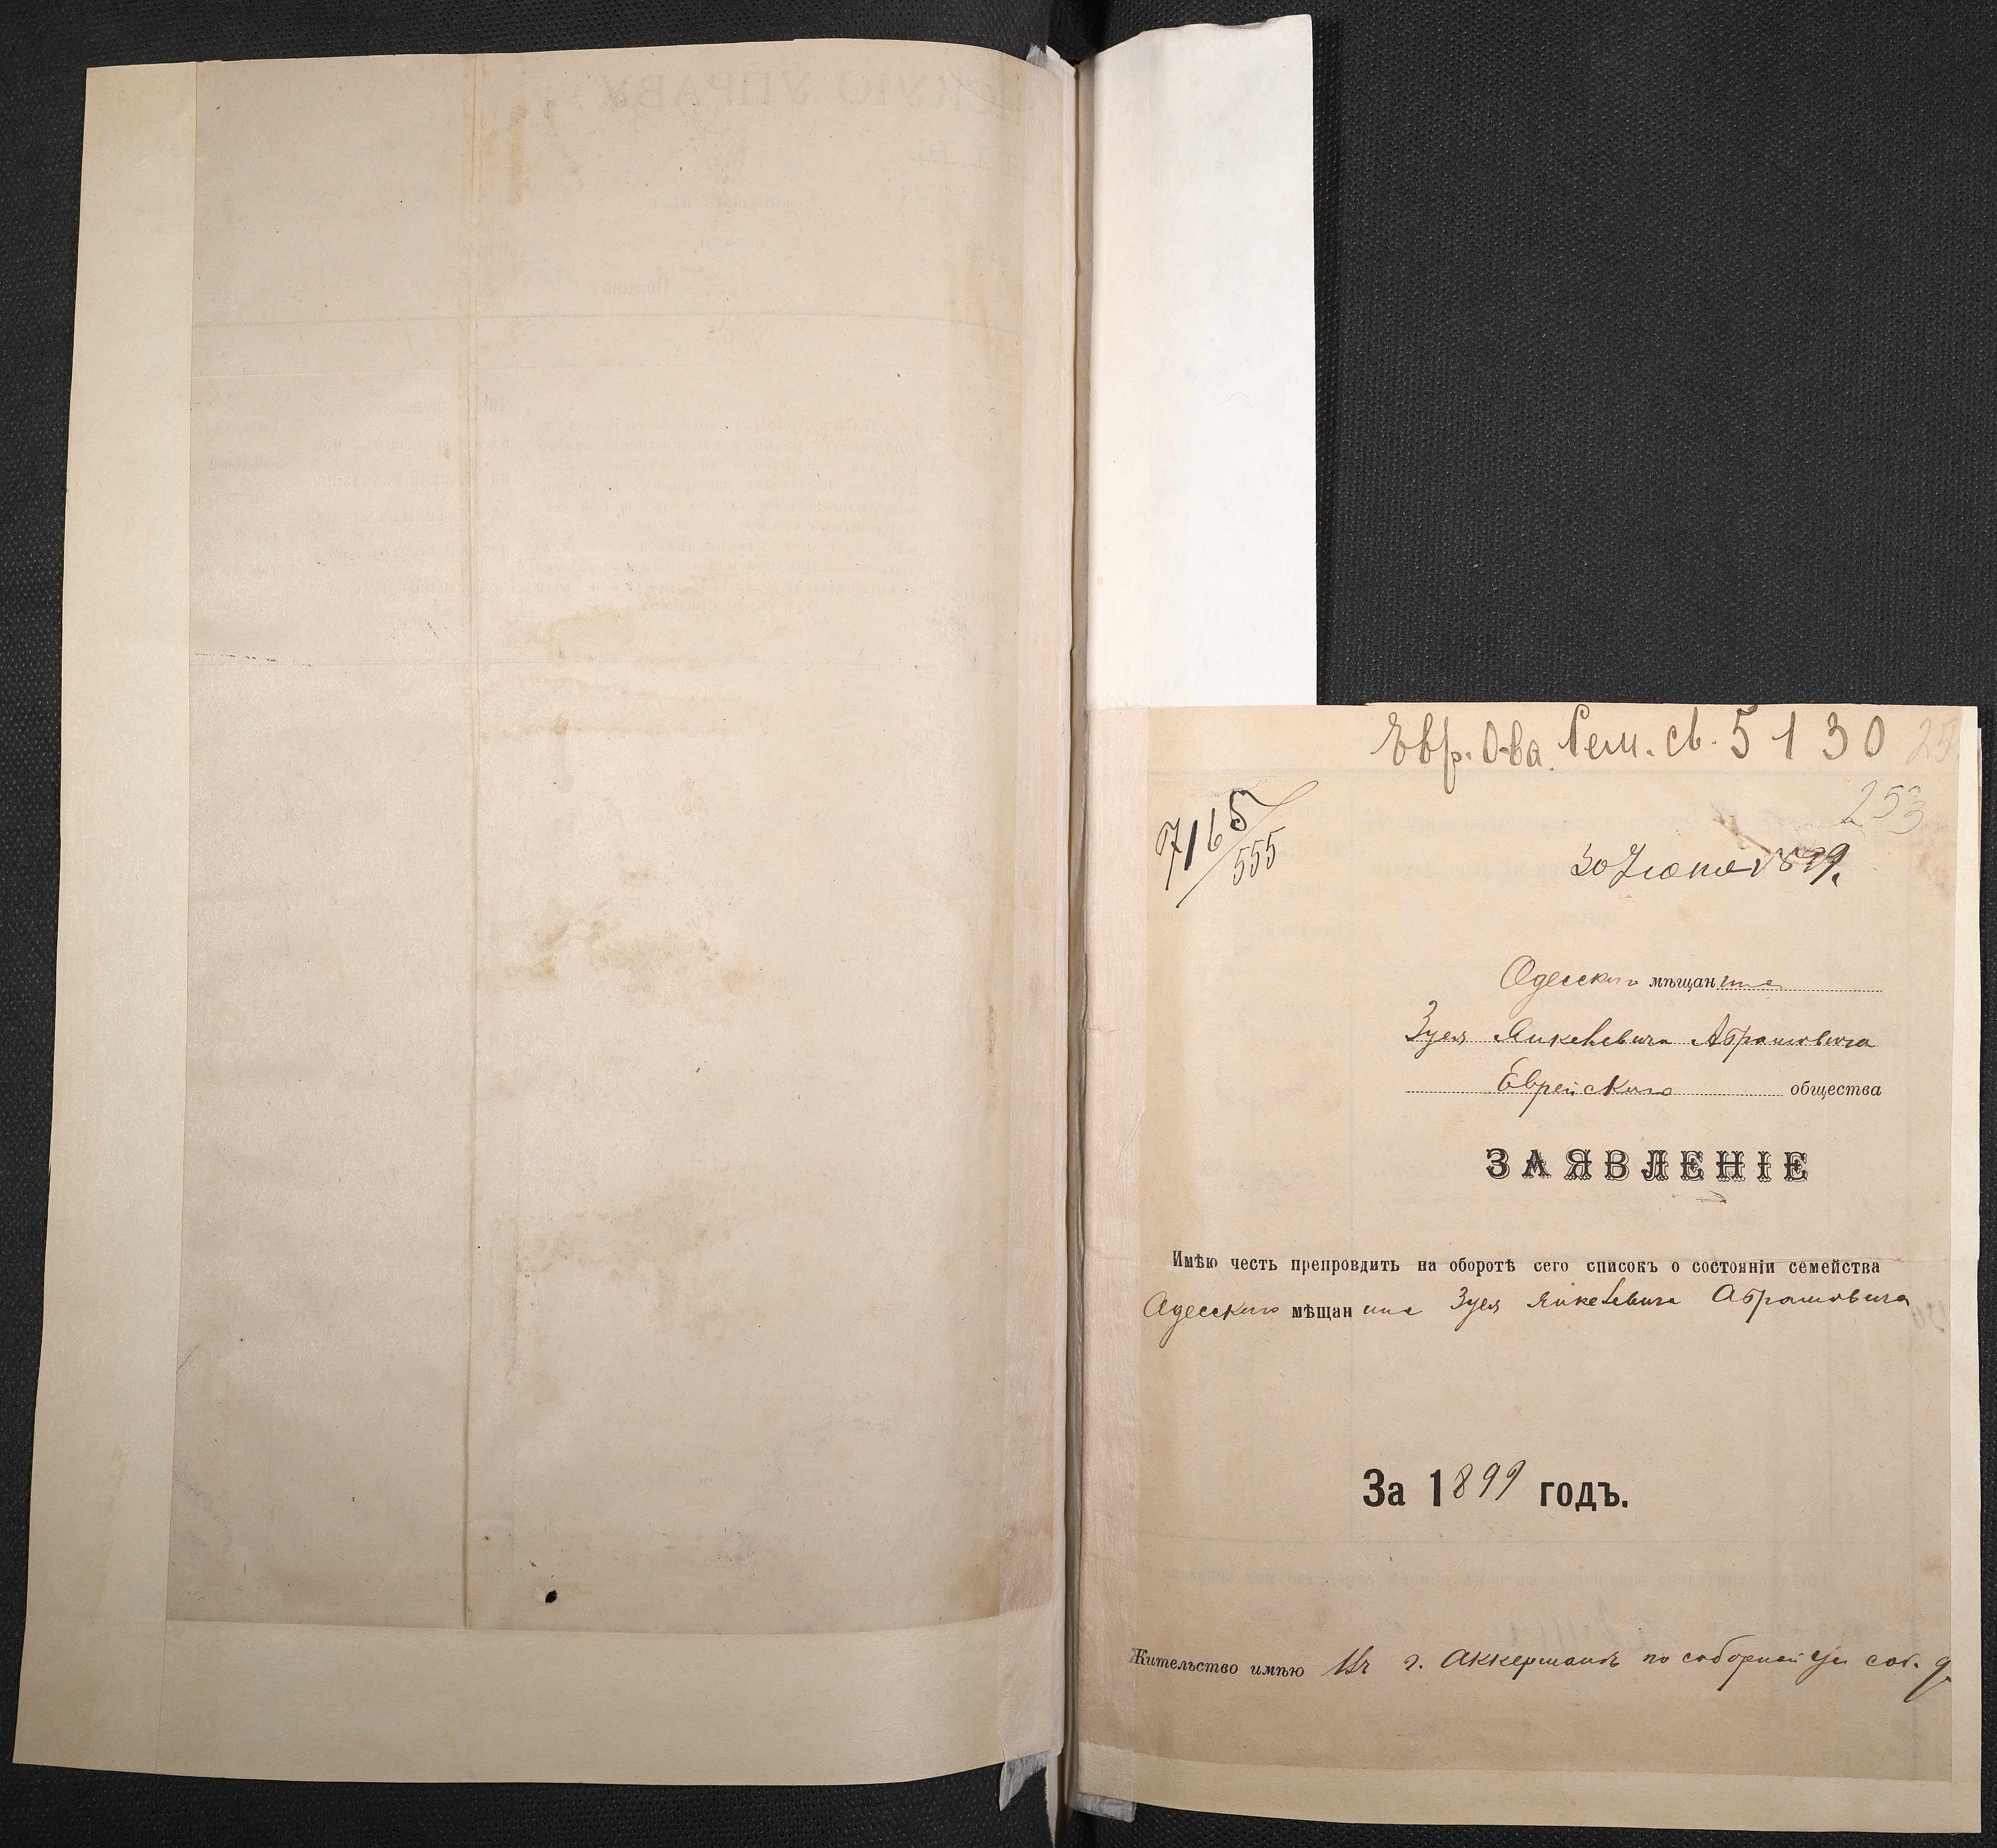 Евр. О-ва. Рем. св. 5130
253
7165/555
30 Июня 1899.
Одесского мѣщанина
Зуся Янкелевича Абрамовича
Еврейского общества
ЗАЯВЛЕНІЕ
Имѣю честь препровдить на оборотѣ сего списокъ о состояніи семейства
Одесского мѣщанина Зуся Янкелевича Абрамовича
За 1899 годъ.
Жительство имѣю въ г. Аккерманѣ по соборной ул соб. д